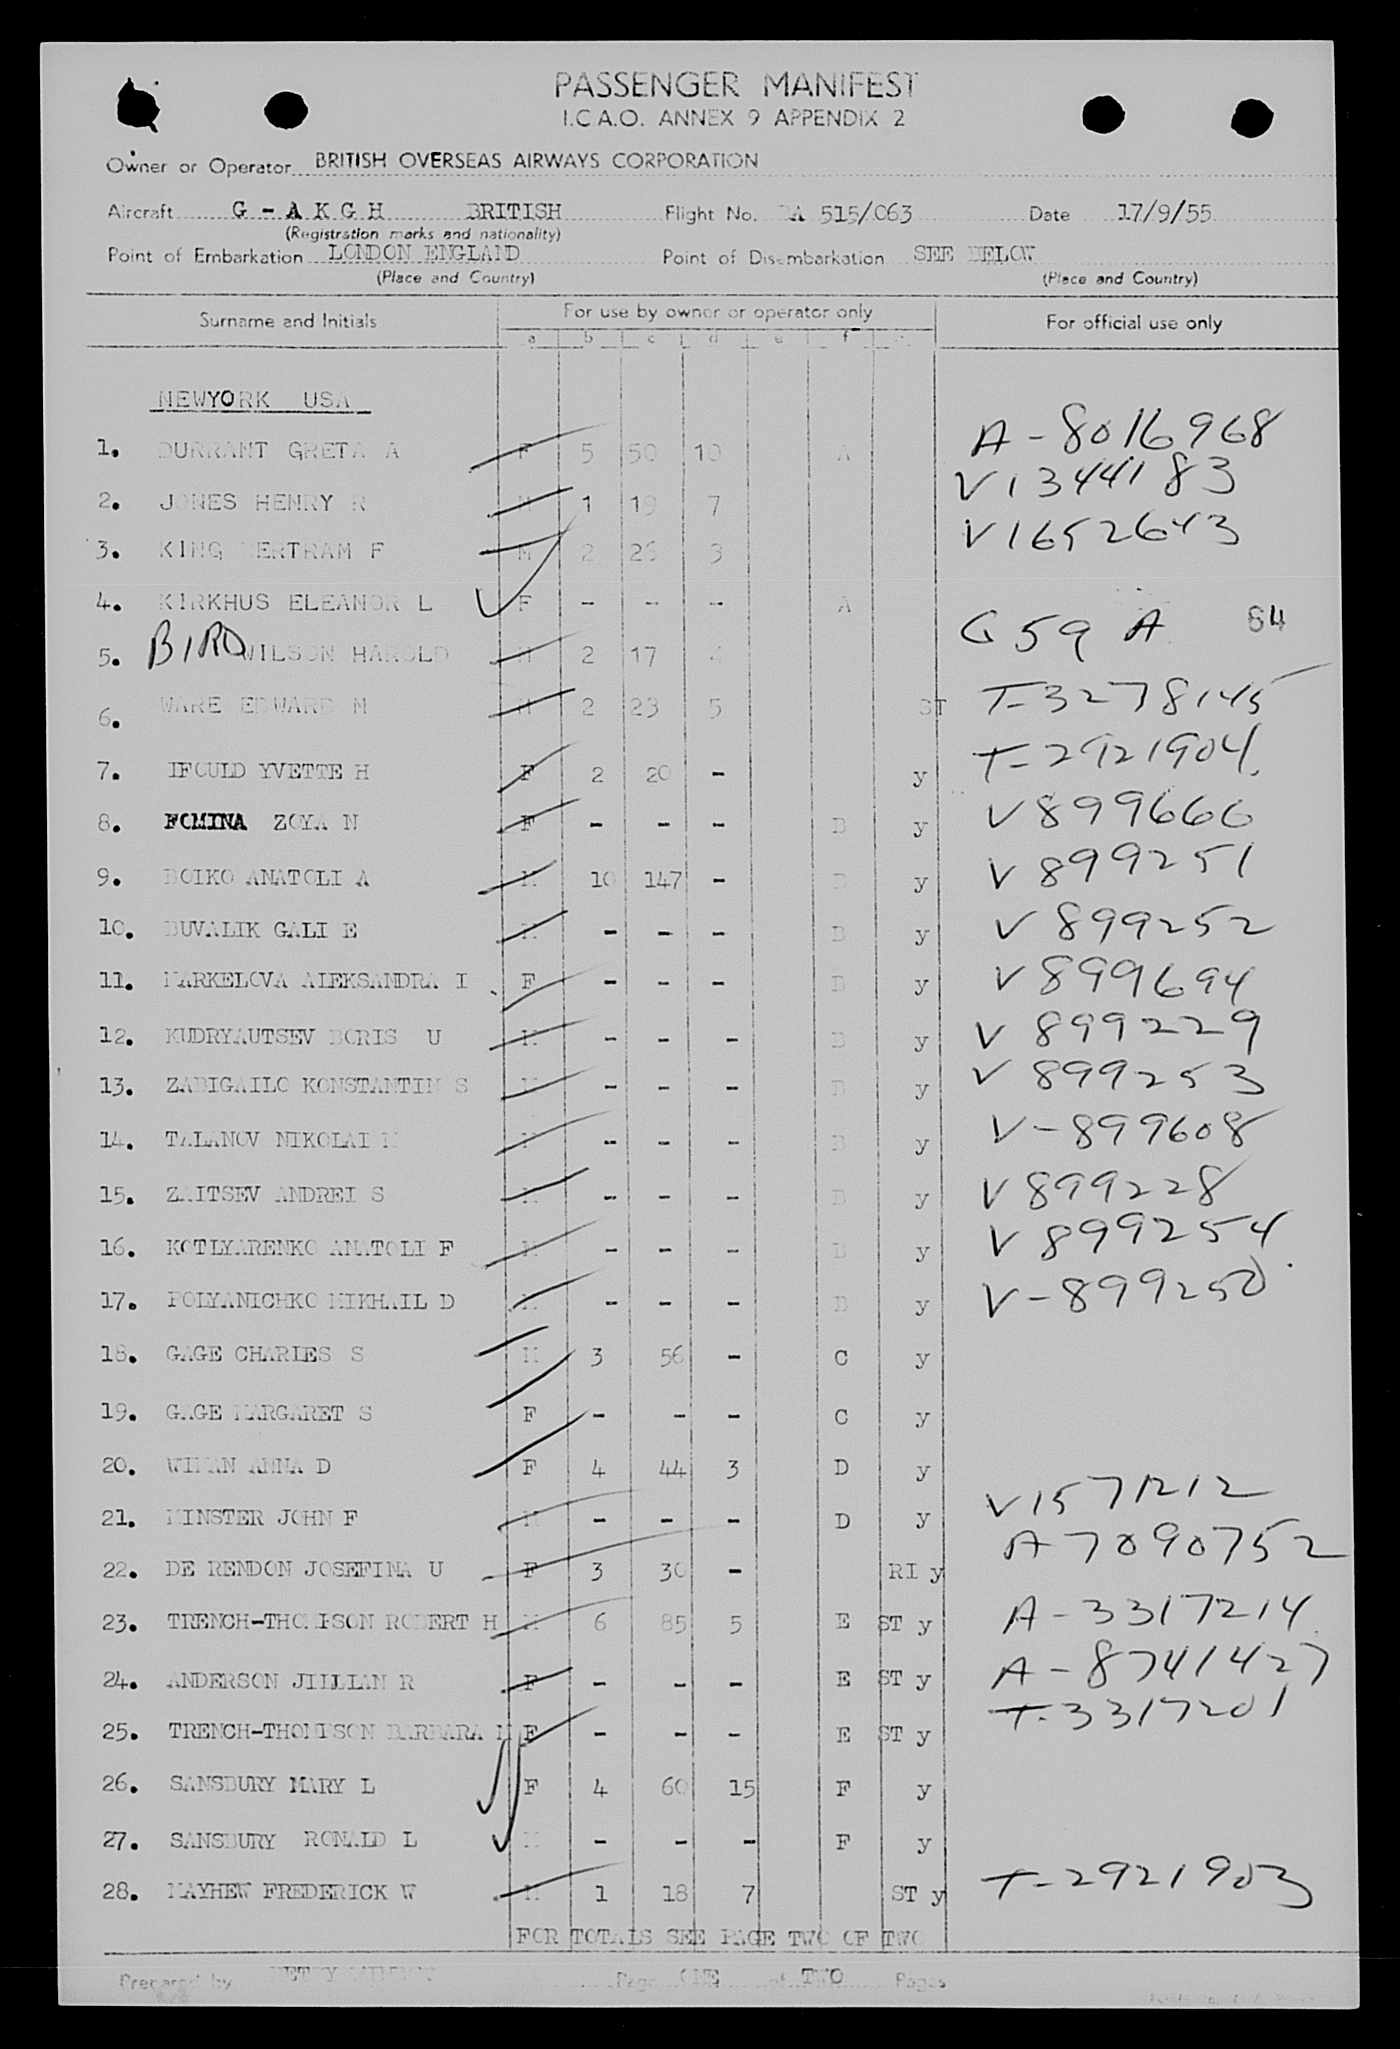 PASSENGER MANIFEST
I.C.A.O. ANNEX 9 APPENDIX 2
Owner or Operator BRITISH OVERSEAS AIRWAYS CORPORATION
Aircraft G - A K G H BRITISH Flight No. BA 515/063 Date 17/9/55
(Registration marks and nationality)
Point of Embarkation LONDON ENGLAND Point of Disembarkation SEE BELOW
(Place and Country) (Place and Country)
Surname and Initials For use by owner or operator only For official use only
a b c d e f
NEWYORK USA
1. DURRANT GRETA A F 5 50 10 A A-8016968
2. JONES HENRY R M 1 19 7 V1344183
3. KING BERTRAM F M 2 23 3 V1652643
4. KIRKHUS ELEANOR L F - - - A
5. BIRD WILSON HAROLD M 2 17 4 G 59 A 84
6. WARE EDWARD M M 2 23 5 ST T-3278145
7. IFOULD YVETTE H F 2 20 - y T-2921904
8. FOMINA ZOYA N F - - - B y V899666
9. BOIKO ANATOLI A M 10 147 - B y V899251
10. BUVALIK GALI E M - - - B y V899252
11. MARKELOVA ALEKSANDRA I F - - - B y V899694
12. KUDRYAUTSEV BORIS U M - - - B y V899229
13. ZABIGAILO KONSTANTIN S M - - - B y V899253
14. TALANOV NIKOLAI M - - - B y V-899608
15. ZAITSEV ANDREI S M - - - B y V899228
16. KOTLYARENKO ANATOLI F M - - - B y V899254
17. POLYANICHKO MIKHAIL D M - - - B y V-899250
18. GAGE CHARLES S M 3 56 - C y
19. GAGE MARGARET S F - - - C y
20. WIMAN ANNA D F 4 44 3 D y
21. MINSTER JOHN F M - - - D y V1571212
22. DE RENDON JOSEFINA U F 3 30 - RI y A-7090752
23. TRENCH-THOMPSON ROBERT H M 6 85 5 E ST y A-3317214
24. ANDERSON JILLIAN R F - - - E ST y A-8741427
25. TRENCH-THOMPSON BARBARA M F - - - E ST y T-3317201
26. SANSBURY MARY L F 4 60 15 F y
27. SANSBURY RONALD L M - - - F y
28. MAYHEW FREDERICK W M 1 18 7 ST y T-2921903
FOR TOTALS SEE PAGE TWO OF TWO
Prepared by Page ONE of TWO Pages